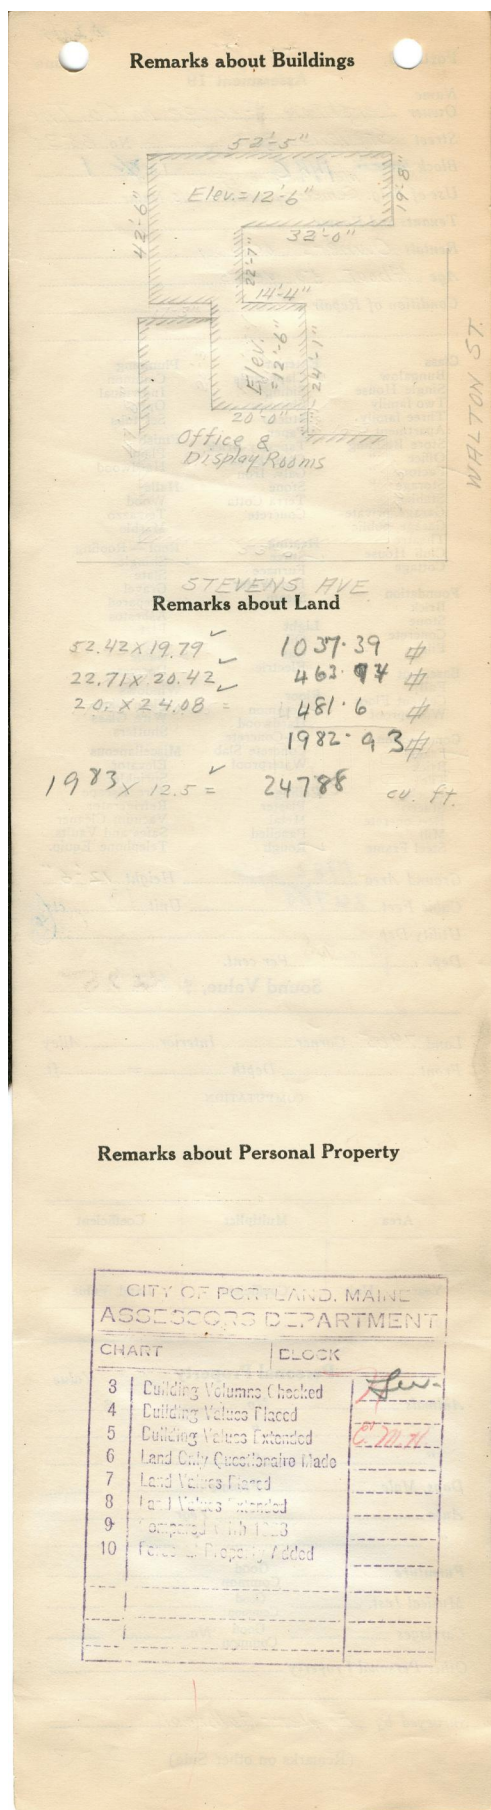 Remarks about Buildings
52'-5"
Elev. = 12'-6"
19'-8"
42'-6"
32'-0"
22'-7"
14'-4"
Elev. = 12'-6"
24'-1"
20'-0"
Office &
Display Rooms
WALTON ST.
STEVENS AVE
Remarks about Land
52.42 X 19.79 ✓ 1037.39 ⏀
22.71 X 20.42 ✓ 463.74 ⏀
20. X 24.08 = ✓ 481.6 ⏀
1982.93 ⏀
1983 X 12.5 = ✓ 24788 cu. ft.
Remarks about Personal Property
CITY OF PORTLAND, MAINE
ASSESSORS DEPARTMENT
CHART BLOCK
3 Building Volumns Checked
4 Building Values Placed
5 Building Values Extended E.M.H
6 Land Only Questionaire Made
7 Land Values Placed
8 Land Values Extended
9 Compared With
10 Personal Property Added